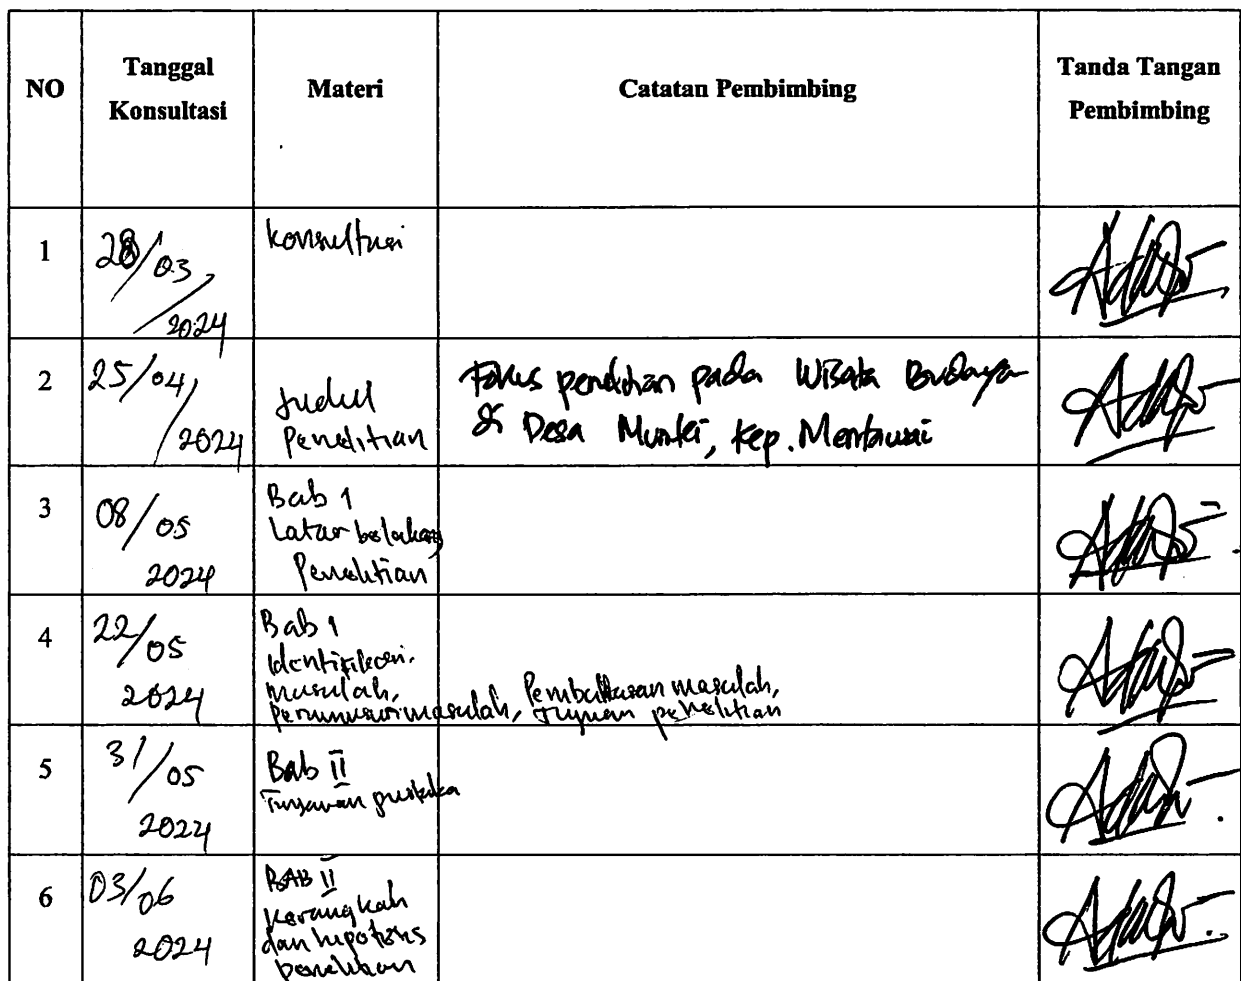 NO Tanggal Konsultasi Materi Catatan Pembimbing Tanda Tangan Pembimbing
1 28/03/2024 Konsultasi
2 25/04/2024 Judul Penelitian Fokus penelitian pada Wisata Budaya
di Desa Muntei, Kep. Mentawai
3 08/05 2024 Bab 1
Latar belakang
Penelitian
4 22/05 2024 Bab 1
Identifikasi
masalah, Pembatasan masalah,
Perumusan masalah, Tujuan penelitian
5 31/05 2024 Bab II
Tinjauan pustaka
6 03/06 2024 BAB II
Kerangkah
dan hipotesis
penelitian